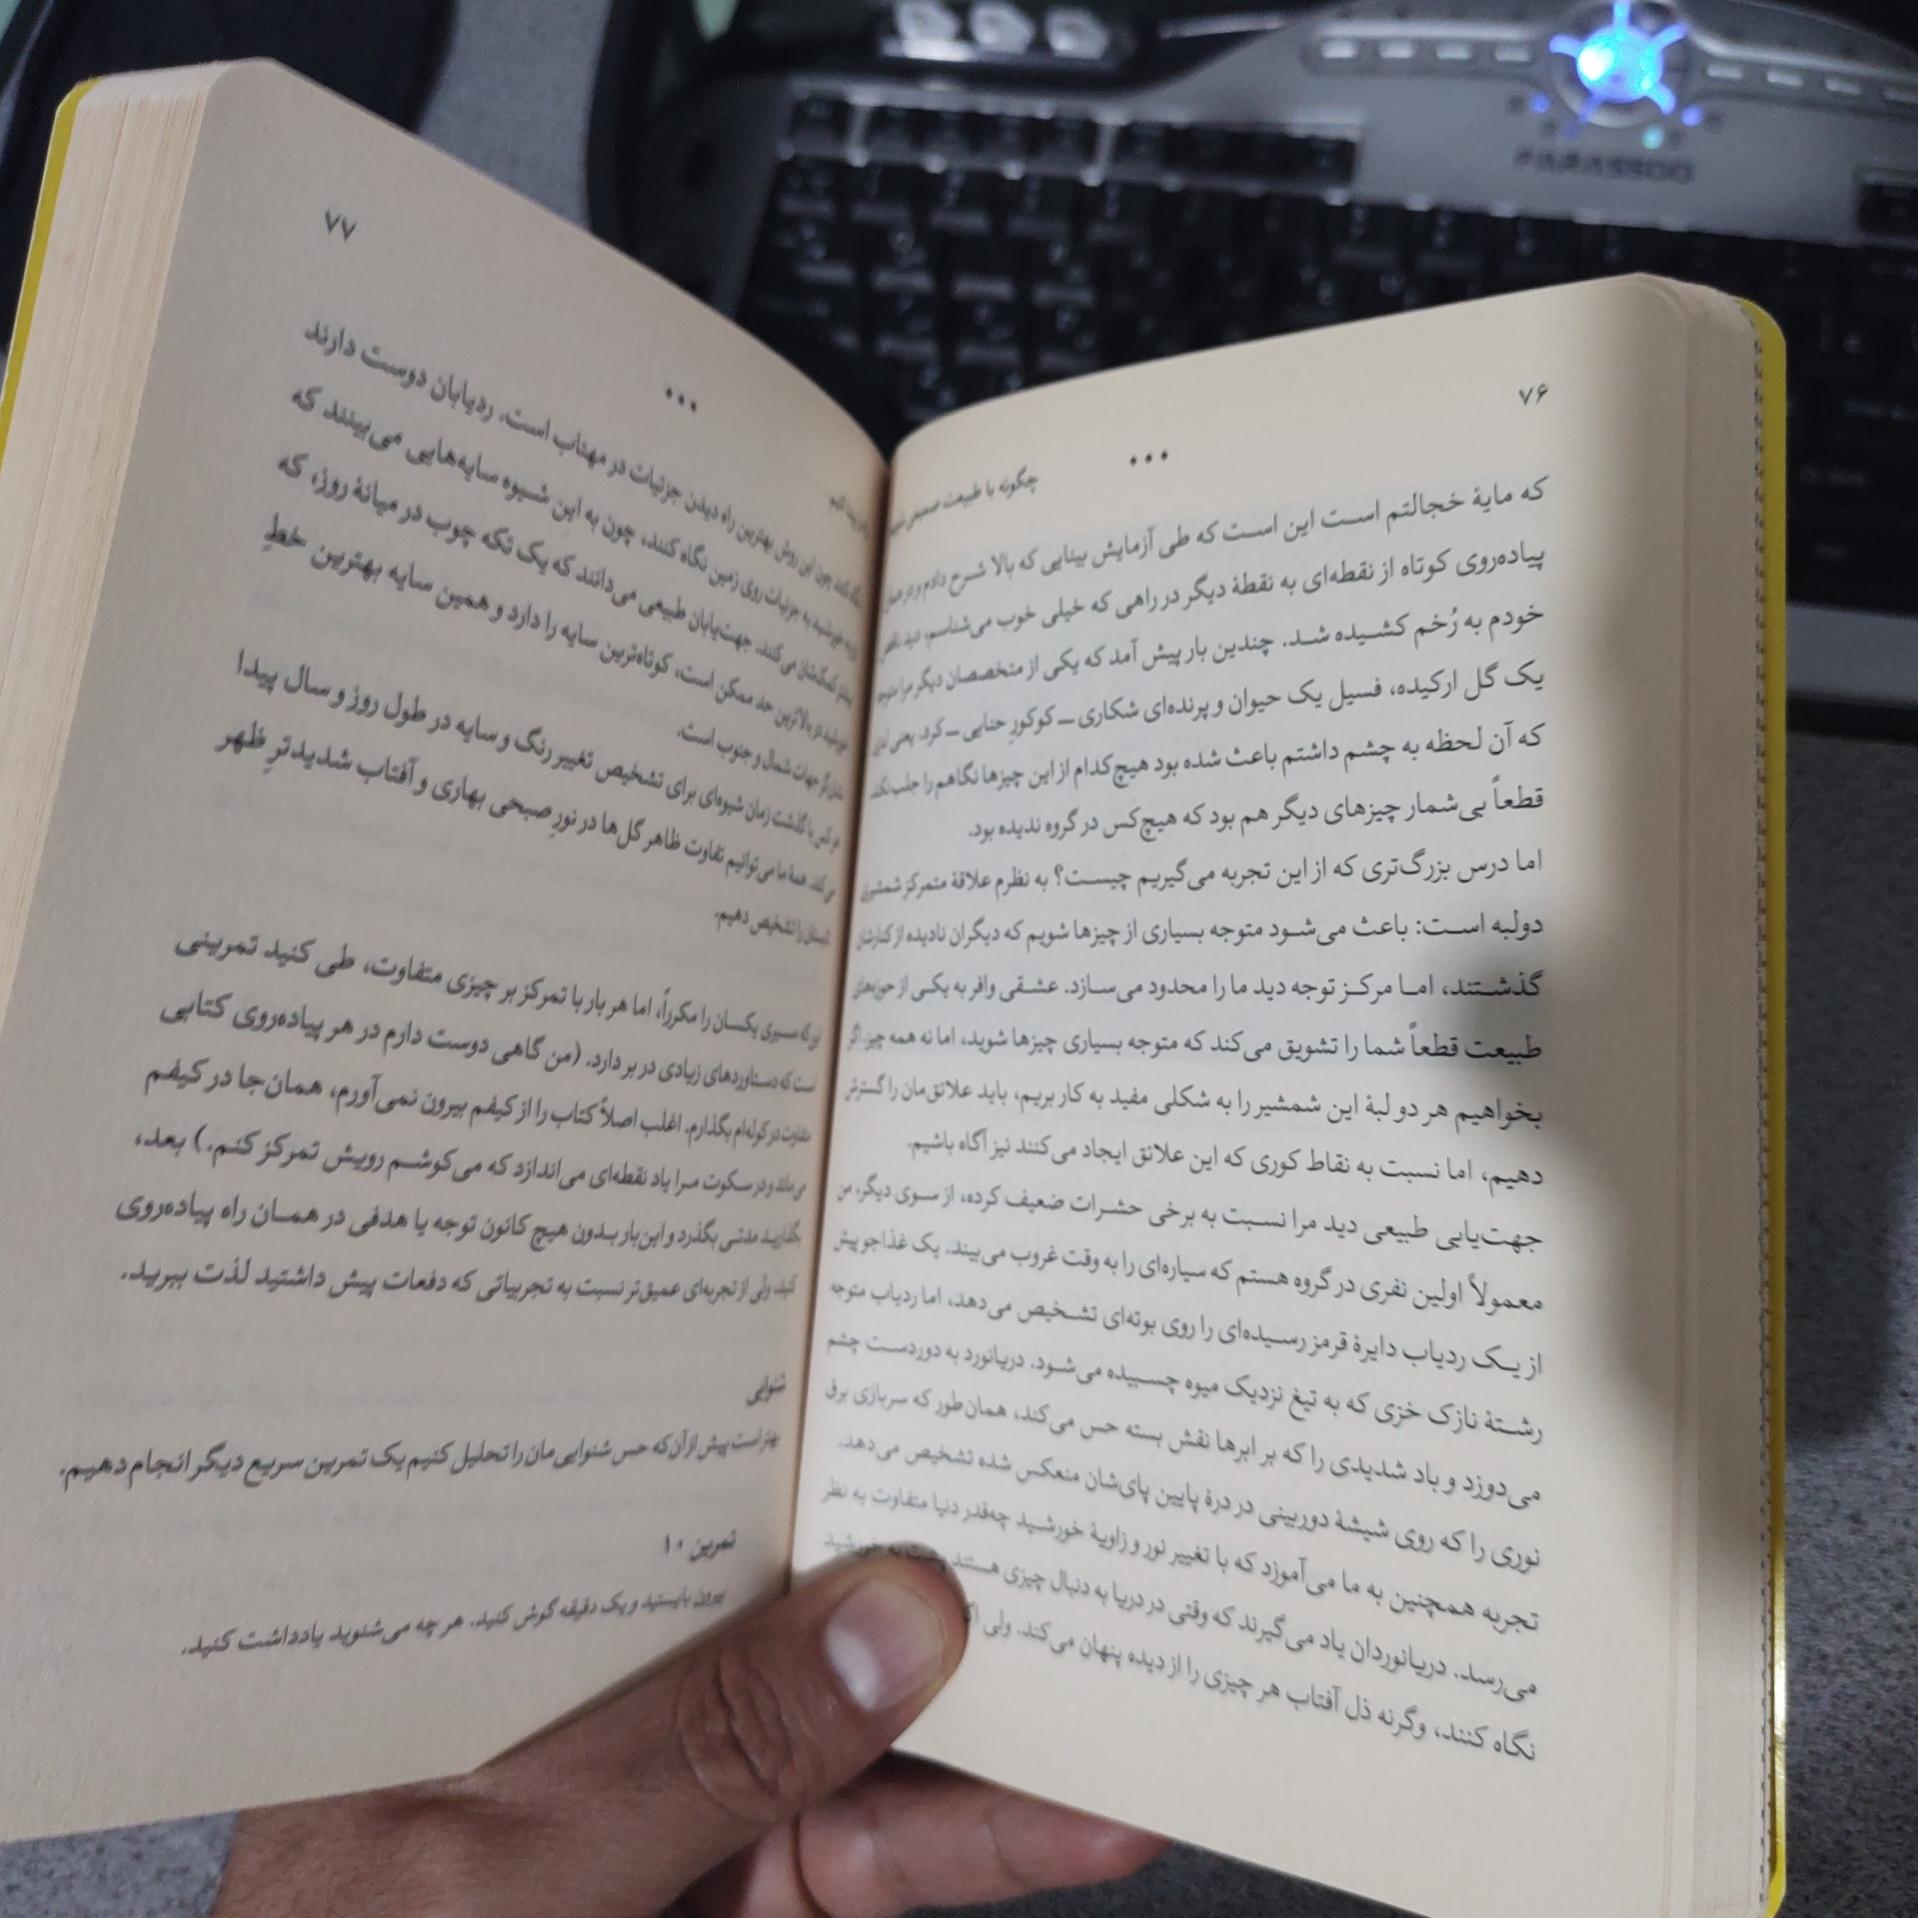 ۷۶
•••
چگونه با طبیعت صمیمی
که مایهٔ خجالتم است این است که طی آزمایش بینایی که بالا شرح دادم و در همان
پیاده‌روی کوتاه از نقطه‌ای به نقطهٔ دیگر در راهی که خیلی خوب می‌شناسم، دید ناقص
خودم به رُخم کشیده شد. چندین بار پیش آمد که یکی از متخصصان دیگر مرا متوجه
یک گل ارکیده، فسیل یک حیوان و پرنده‌ای شکاری ــ کوکورِ حنایی ــ کرد. یعنی
که آن لحظه به چشم داشتم باعث شده بود هیچ‌کدام از این چیزها نگاهم را جلب نکند.
قطعاً بی‌شمار چیزهای دیگر هم بود که هیچ‌کس در گروه ندیده بود.
اما درس بزرگ‌تری که از این تجربه می‌گیریم چیست؟ به نظرم علاقهٔ متمرکز شمشیری
دولبه است: باعث می‌شود متوجه بسیاری از چیزها شویم که دیگران نادیده از کنارشان
گذشتند، اما مرکز توجه دید ما را محدود می‌سازد. عشقی وافر به یکی از حوزه‌های
طبیعت قطعاً شما را تشویق می‌کند که متوجه بسیاری چیزها شوید، اما نه همه چیز. اگر
بخواهیم هر دو لبهٔ این شمشیر را به شکلی مفید به کار بریم، باید علائق‌مان را گسترش
دهیم، اما نسبت به نقاط کوری که این علائق ایجاد می‌کنند نیز آگاه باشیم.
جهت‌یابی طبیعی دید مرا نسبت به برخی حشرات ضعیف کرده، از سوی دیگر، من
معمولاً اولین نفری در گروه هستم که سیاره‌ای را به وقت غروب می‌بیند. یک غذاجو پیش
از یک ردیاب دایرهٔ قرمز رسیده‌ای را روی بوته‌ای تشخیص می‌دهد، اما ردیاب متوجه
رشتهٔ نازک خزی که به تیغ نزدیک میوه چسبیده می‌شود. دریانورد به دوردست چشم
می‌دوزد و باد شدیدی را که بر ابرها نقش بسته حس می‌کند، همان‌طور که سربازی برق
نوری را که روی شیشهٔ دوربینی در درهٔ پایین پای‌شان منعکس شده تشخیص می‌دهد.
تجربه همچنین به ما می‌آموزد که با تغییر نور و زاویهٔ خورشید چه‌قدر دنیا متفاوت به نظر
می‌رسد. دریانوردان یاد می‌گیرند که وقتی در دریا به دنبال چیزی هستند خورشید
نگاه کنند، وگرنه ذل آفتاب هر چیزی را از دیده پنهان می‌کند. ولی
۷۷
•••
نگاه کنند چون این روش بهترین راه دیدن جزئیات در مهتاب است. ردیابان دوست دارند
رو به خورشید به جزئیات روی زمین نگاه کنند، چون به این شیوه سایه‌هایی می‌بینند که
بیشتر کمک‌شان می‌کنند. جهت‌یابان طبیعی می‌دانند که یک تکه چوب در میانهٔ روز، که
خورشید در بالاترین حد ممکن است، کوتاه‌ترین سایه را دارد و همین سایه بهترین خطِ
نشان‌گر جهات شمال و جنوب است.
هر کس با گذشت زمان شیوه‌ای برای تشخیص تغییر رنگ و سایه در طول روز و سال پیدا
می‌کند. همهٔ ما می‌توانیم تفاوت ظاهر گل‌ها در نورِ صبحی بهاری و آفتاب شدیدترِ ظهر
تابستان را تشخیص دهیم.
این که مسیری یکسان را مکرراً، اما هر بار با تمرکز بر چیزی متفاوت، طی کنید تمرینی
است که دستاوردهای زیادی در بر دارد. (من گاهی دوست دارم در هر پیاده‌روی کتابی
متفاوت در کوله‌ام بگذارم. اغلب اصلاً کتاب را از کیفم بیرون نمی‌آورم، همان‌جا در کیفم
می‌ماند و در سکوت مرا یاد نقطه‌ای می‌اندازد که می‌کوشم رویش تمرکز کنم.) بعد،
بگذارید مدتی بگذرد و این‌بار بدون هیچ کانون توجه یا هدفی در همان راه پیاده‌روی
کنید، ولی از تجربه‌ای عمیق‌تر نسبت به تجربیاتی که دفعات پیش داشتید لذت ببرید.
شنوایی
بهتر است پیش از آن‌که حس شنوایی‌مان را تحلیل کنیم یک تمرین سریع دیگر انجام دهیم.
تمرین ۱۰
بیرون بایستید و یک دقیقه گوش کنید. هر چه می‌شنوید یادداشت کنید.
FARASSOO